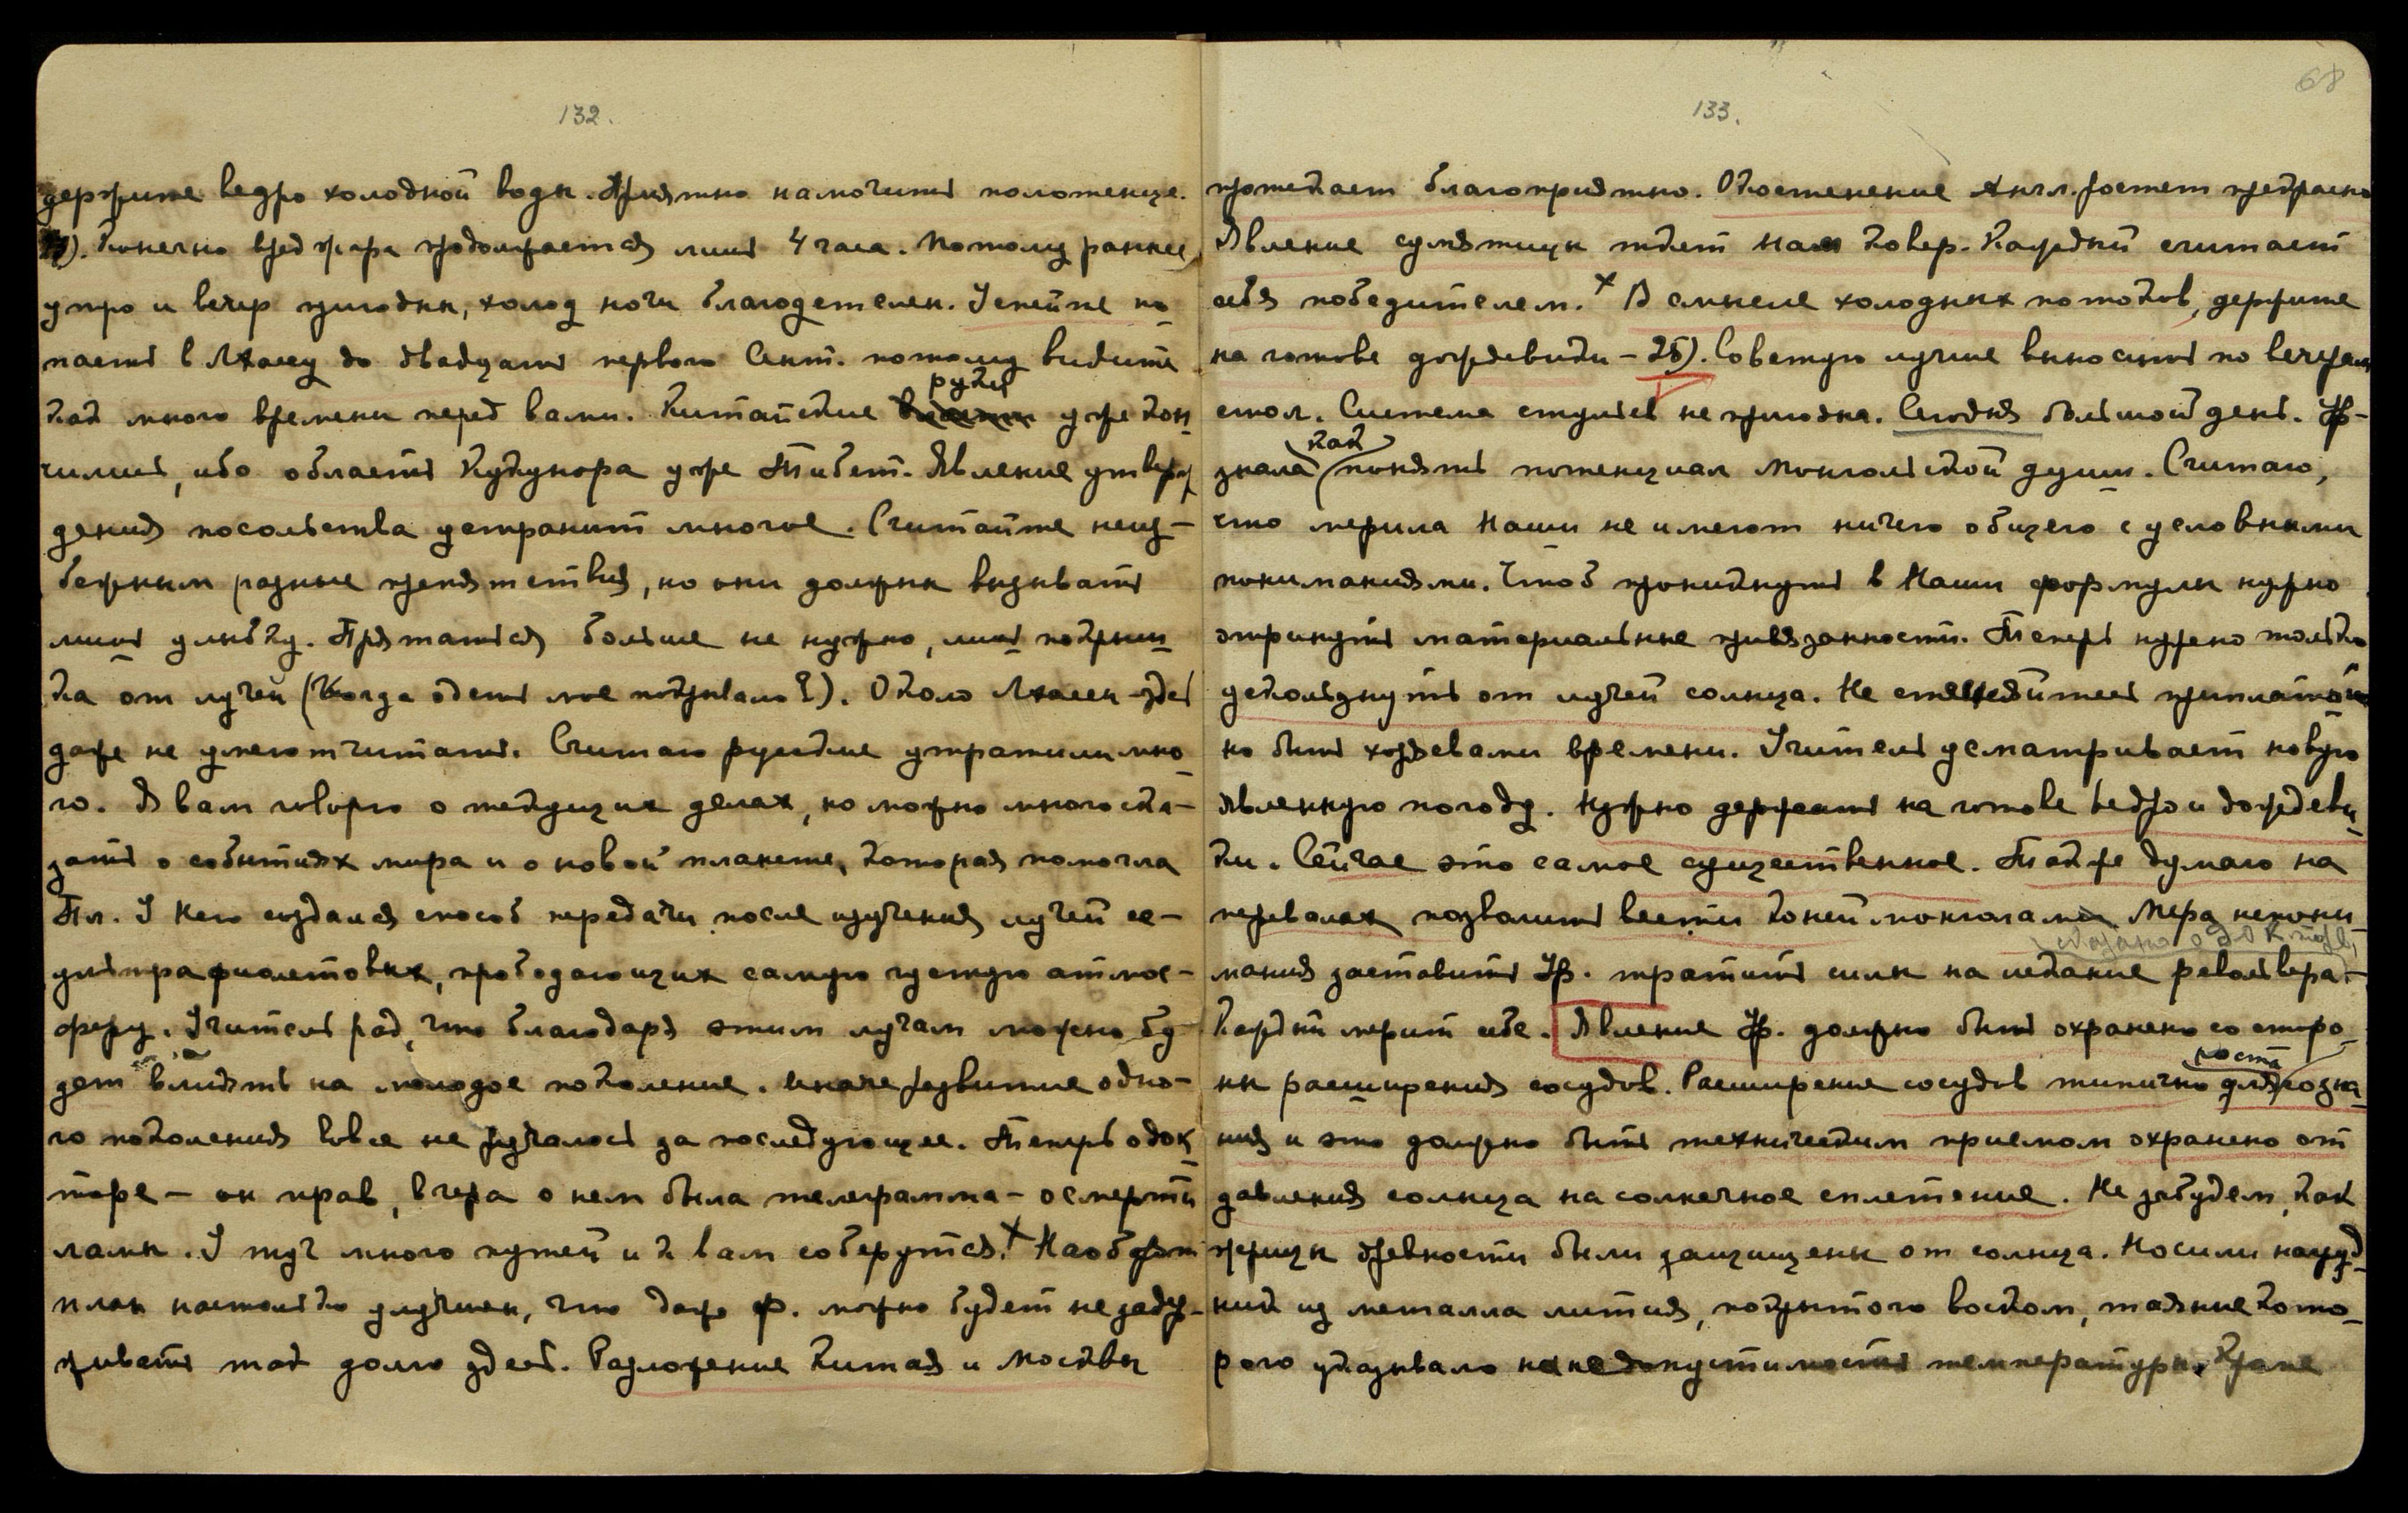 132.
держите ведро холодной воды. Приятно намочить полотенце.
Конечно вред жара продолжается лишь 4 часа. Потому раннее
утро и вечер пригодны, холод ночи благодетелен. Успейте по-
пасть в Лхассу до двадцать первого Сент. потому видите
как много времени перед вами. Китайские руки уже кон-
чились, ибо область Кукунора уже Тибет. Явление утверж-
дения посольства устранит многое. Считайте неиз-
бежным разные препятствия, но они должны вызывать
лишь улыбку. Прятаться больше не нужно, лишь покрыш-
ка от лучей (Когда одеть мое покрывало?). Около Лхассы здесь
даже не умеют читать. Считаю русские утратили мно-
го. Я вам говорю о текущих делах, но можно много ска-
зать о событиях мира и о новой планете, которая помогла
Пл. У Него создался способ передачи после изучения лучей ее -
ультрафиолетовых, прободающих самую густую атмос-
феру. Учитель рад, что благодаря этим лучам можно бу-
дет влиять на молодое поколение. Иначе развитие одно-
го поколения вовсе не ручалось за последующее. Теперь о док-
торе - он прав, вчера о нем была телеграмма - о смерти
ламы. У туч много путей и к вам соберутся. + Наоборот
план настолько улучшен, что даже Ф. можно будет не задер-
живать так долго здесь. Разложение Китая и Москвы
68
133.
протекает благоприятно. Окостенение Англ. растет прекрасно
Явление сумятицы ткет наш ковер. Каждый считает
себя победителем. + В смысле холодных потоков, держите
на готове дождевики - 25). Советую лучше выносить по вечерам
стол. Система стульев не пригодна. Сегодня большой день. Ур-
знала как понять потенциал монгольской души. Считаю,
что мерила Наши не имеют ничего общего с условными
пониманиями. Чтоб проникнуть в Наши формулы нужно
отринуть материальные привязанности. Теперь нужно только
ускользнуть от лучей солнца. Не
но быть хозяевами времени. Учитель усматривает новую
явленную погоду. Нужно держать на готове ведро и дождеви-
ки. Сейчас это самое существенное. Также думаю на
перевалах позволить вести коней монголам. Мера непони-
сказано о докторе
мания заставить Ур. тратить силы на искание револьвера. -
Каждый мерит себе. Явление Ур. должно быть охранено со сторо-
ны расширения сосудов. Расширение сосудов типично для роста созна-
ния и это должно быть техническим приемом охранено от
давления солнца на солнечное сплетение. Не забудем, как
жрицы древности были защищены от солнца. Носили нагруд-
ник из металла лития, покрытого воском, таяние кото-
рого указывало на недопустимость температуры. Кроме